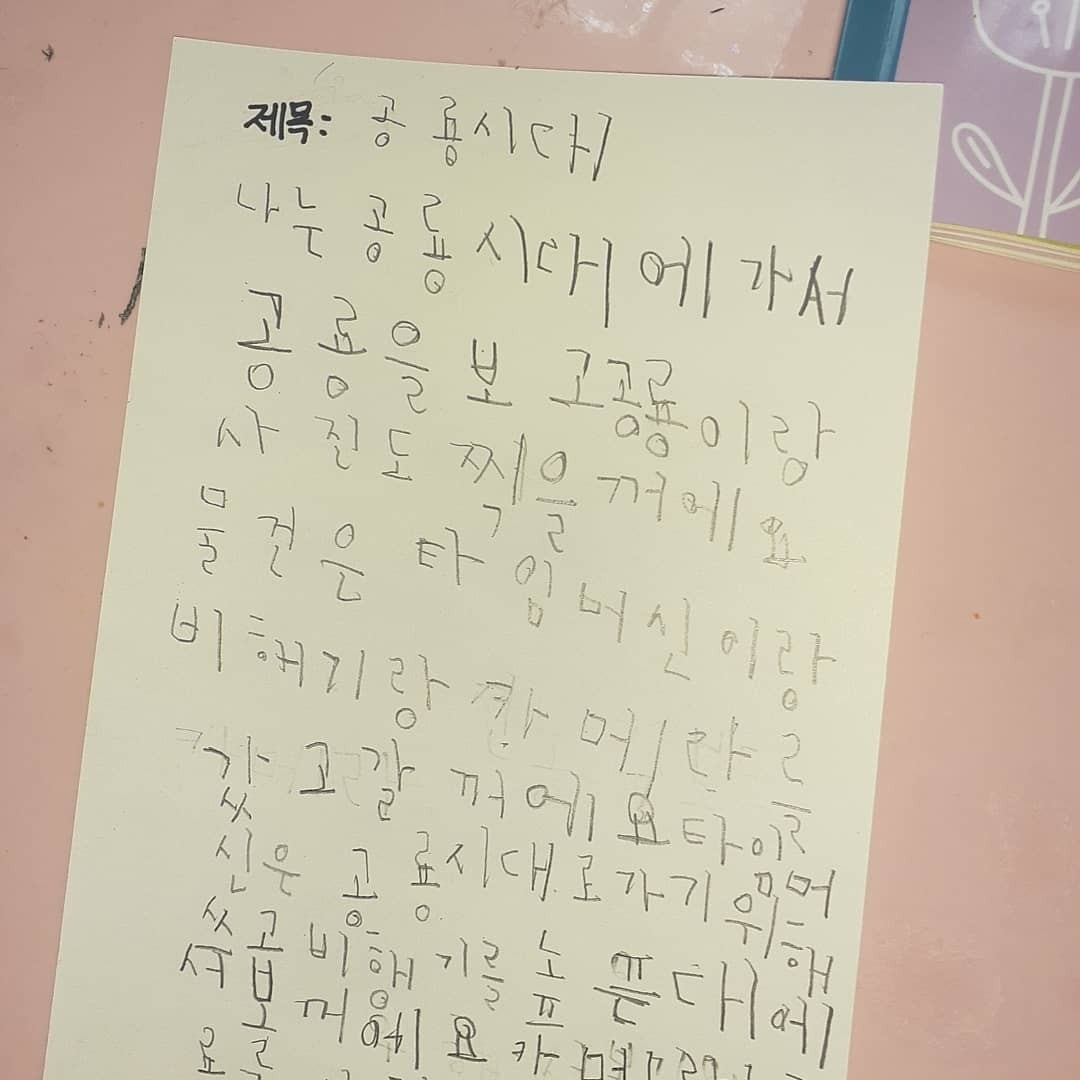 제목: 공룡시대
나는 공룡시대에 가서
공룡을 보고 공룡이랑
사진도 찍을꺼에요
물건은 타임머신이랑
비행기랑 카메라를
갔고갈꺼에요 타임머
신은 공룡시대로 가기 위해
쓰고 비행기를 노픈대에
서 볼꺼에요